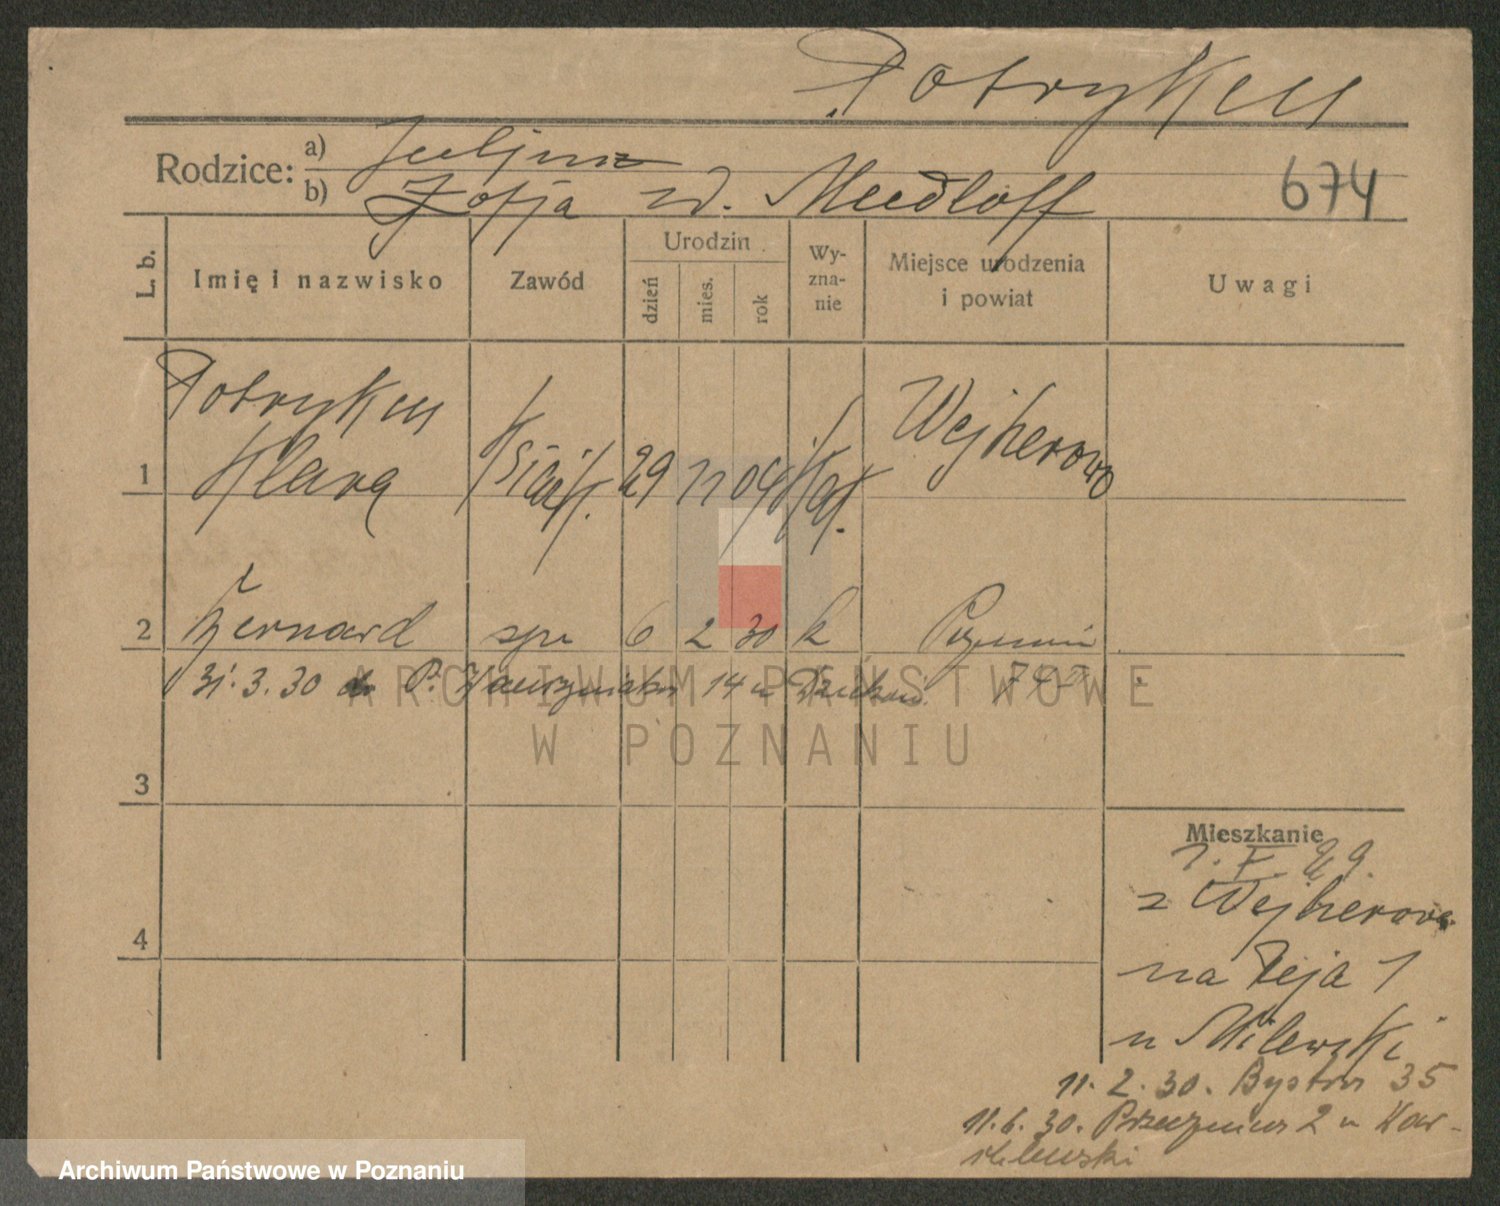 Potrykus
Rodzice: a) Juljusz
b) Zofja z d. Mudloff
674
L. b. Imię i nazwisko Zawód Urodzin dzień mies. rok Wyznanie Miejsce urodzenia i powiat Uwagi
Potrykus
1 Klara 29 11 04 kat. Wejherowo
2 Bernard syn 6 2 30 k Poznań
31.3.30 do P. 14 u
ARCHIWUM PAŃSTWOWE
W POZNANIU
3
4
Mieszkanie
1. X. 29.
z Wejherowa
na Reja 1
u Milewski
11. 2. 30. Bystra 35
11. 6. 30. 2 u
Archiwum Państwowe w Poznaniu